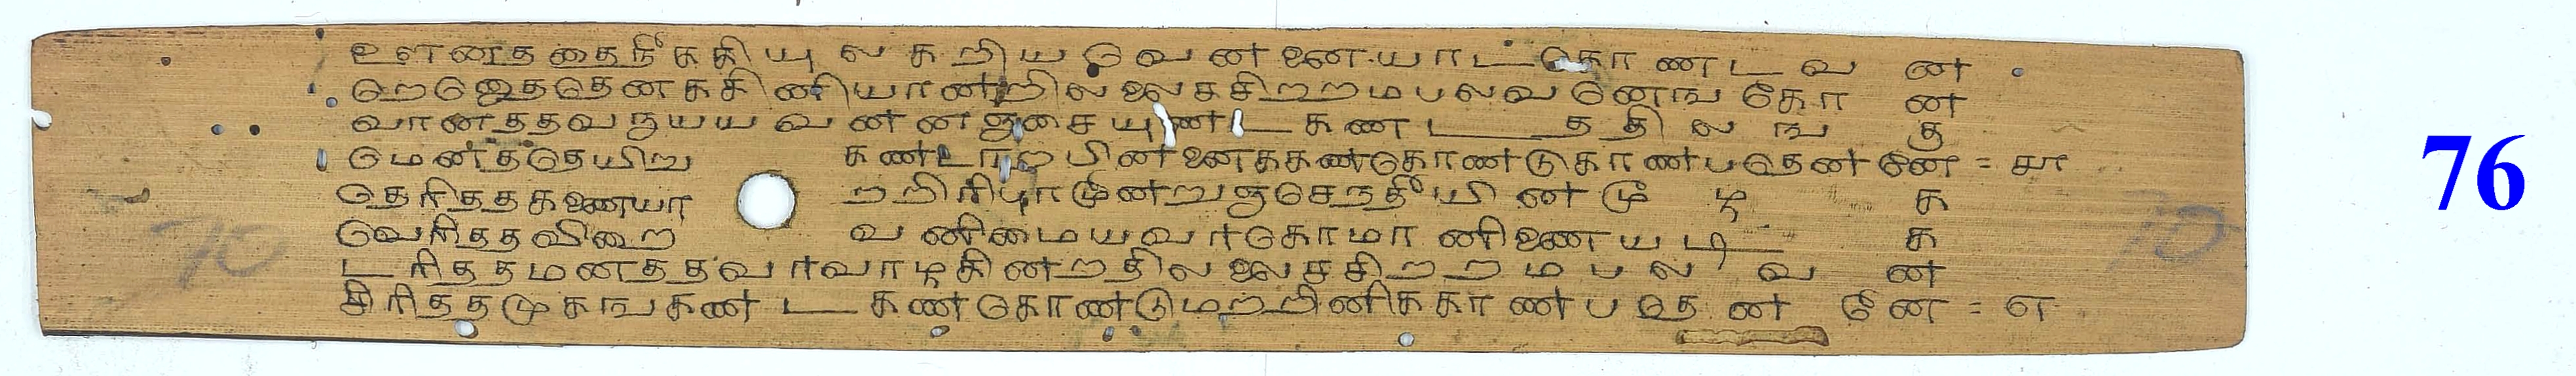 உளனததைநீககியுலகறியவெனனையாடகொணடவன
றெஞ்தெனககினியானறிலலைசசிறறமபலவனெஙகோன
வானததவருயயவனனஞசையுணடகணடததிலஙகு
மெனததெயிறு கணடாறபினனைககணகொணடுகாணபதெனனே = ௬
தெரிததகணையா றறிரிபுரமூனறுஞசெநதீயினமூழக
வெரிததவிறை வனிமையவரகோமானிணையடிக
டரிததமனததவரவாழகினறதிலலைசசிறறமபலவன
சிரிததமுகஙகணடகணகொணடுமறறினிககாணபதெனனே = ௭
76